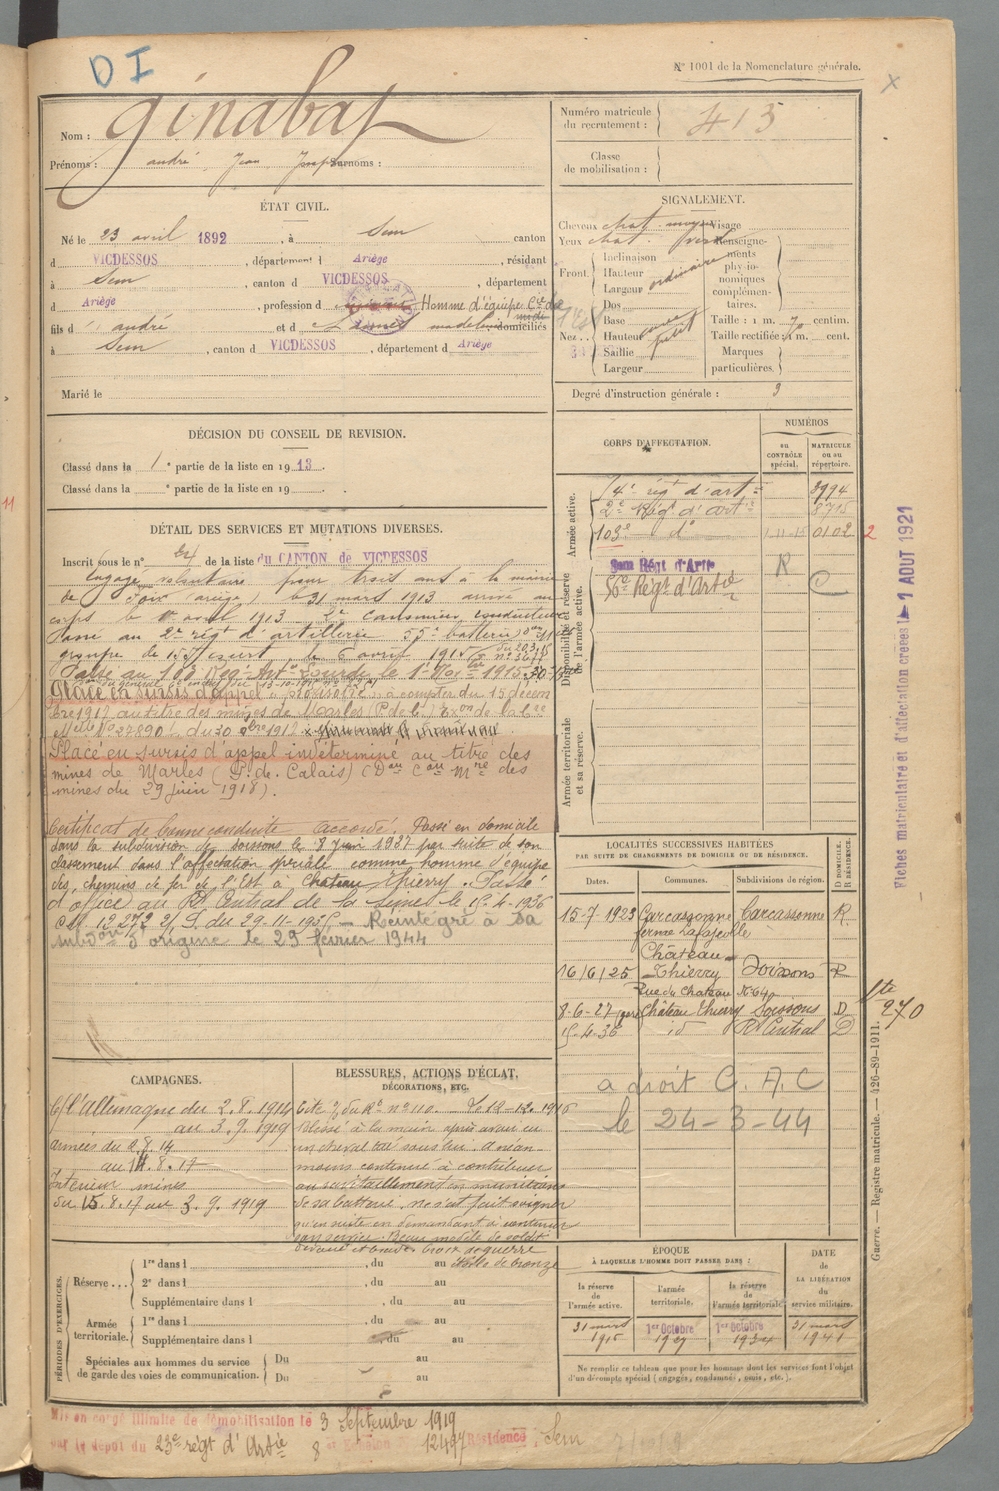 D I
N° 1001 de la Nomenclature générale.
x
Nom : Ginabat
Prénoms : andré Jean Joseph Surnoms :
Numéro matricule du recrutement : 413
Classe de mobilisation :
ÉTAT CIVIL.
Né le 23 avril 1892, à Sem canton
d VICDESSOS, département d Ariège, résidant
à Sem, canton d VICDESSOS, département
d Ariège, profession d Homme d'équipe Cie du midi
fils d andré et d madeleine domiciliés
à Sem, canton d VICDESSOS, département d Ariège
Marié le
SIGNALEMENT.
Cheveux chat. moyen Visage
Yeux chat. Renseignements physionomiques complémentaires.
Front. Inclinaison
Hauteur ordinaire
Largeur
Nez Dos
Base
Hauteur
Saillie petit
Largeur
Taille : 1 m. 70 centim.
Taille rectifiée : 1 m. cent.
Marques particulières.
Degré d'instruction générale : 3
DÉCISION DU CONSEIL DE REVISION.
Classé dans la 1e partie de la liste en 1913.
Classé dans la e partie de la liste en 19 .
CORPS D'AFFECTATION.
NUMÉROS
au CONTRÔLE spécial.
MATRICULE ou au répertoire.
Armée active.
14e régt d'art ie 3994
2e Régt d'artie 8715
103e do 1-11-15 0102 2
Disponibilité et réserve de l'armée active.
Régt d'Artie R
56e Régt d'Artie
Armée territoriale et sa réserve.
11
DÉTAIL DES SERVICES ET MUTATIONS DIVERSES.
Inscrit sous le n° 24 de la liste du CANTON de VICDESSOS
Engagé volontaire pour trois ans à la mairie
de Foix (ariège) le 31 mars 1913 arrivé au
corps le 1er avril 1913 2e canonnier conducteur
Passé au 2e régt d'artillerie 55e batterie
groupe de 155 court le 6 avril 1915
Passé au 103 Régt Artie Lourde le 1er Nov bre 1915
Placé en sursis d'appel à compter du 15 décem
bre 1917 au titre des mines de Marles (P de C)
du 30 9bre 1917
Placé en sursis d'appel indéterminé au titre des
mines de Marles (P. de Calais) (Don Con Mre des
mines du 29 juin 1918).
Certificat de bonne conduite accordé. Passé en domicile
dans la subdivision de Soissons le 8 Juin 1937 par suite de son
classement dans l'affectation spéciale comme homme d'équipe
des chemins de fer de l'Est à Château Thierry. Passé
d'office au Rt Central de la Seine le 15-4-1936
12.272 2/S. du 29-11-1935 — Réintégré à sa
subdon d'origine le 29 février 1944
LOCALITÉS SUCCESSIVES HABITÉES
PAR SUITE DE CHANGEMENTS DE DOMICILE OU DE RÉSIDENCE.
Dates. Communes. Subdivisions de région. D DOMICILE. R RÉSIDENCE.
15-7-1923 Carcassonne Carcassonne R
ferme Lafajeolle
Château-
16/6/25 Thierry Soissons R
Rue du Chateau N° 64
8-6-27 gare Château Thierry Soissons D
15-4-36 id Rt Central D
a droit C. A. C
le 24-3-44
270
Fiches matriculaire et d'affectation créées le 1 AOUT 1921
Guerre. — Registre matricule. — 426-89-1911.
CAMPAGNES.
C/l'Allemagne du 2.8.1914
au 3.9.1919
armées du 2.8.14
au 14.8.17
Intérieur mines
du 15.8.17 au 3.9.1919
BLESSURES, ACTIONS D'ÉCLAT, DÉCORATIONS, ETC.
Cité O/ du Rt n° 110. Le 12-12-1916
Blessé à la main après avoir eu
un cheval tué sous lui, a néan-
moins continué à contribuer
au ravitaillement en munitions
de sa batterie, ne s'est fait soigner
qu'ensuite en demandant à continuer
son service. Beau modèle de soldat
dévoué et brave. Croix de guerre
étoile de bronze
PÉRIODES D'EXERCICES.
Réserve... 1re dans l , du au
2e dans l , du au
Supplémentaire dans l , du au
Armée territoriale. 1re dans l , du au
Supplémentaire dans l , du au
Spéciales aux hommes du service de garde des voies de communication. Du au
Du au
ÉPOQUE
À LAQUELLE L'HOMME DOIT PASSER DANS :
la réserve de l'armée active. l'armée territoriale. la réserve de l'armée territoriale.
DATE de LA LIBÉRATION du service militaire.
31 mars 1916 1er Octobre 1927 1er Octobre 1934 31 mars 1941
Ne remplir ce tableau que pour les hommes dont les services font l'objet
d'un décompte spécial (engagés, condamnés, omis, etc.).
Mis en congé illimité de démobilisation le 3 Septembre 1919
par le dépôt du 23e régt d'Artie 8e Echelon 12497 Résidence : Sem